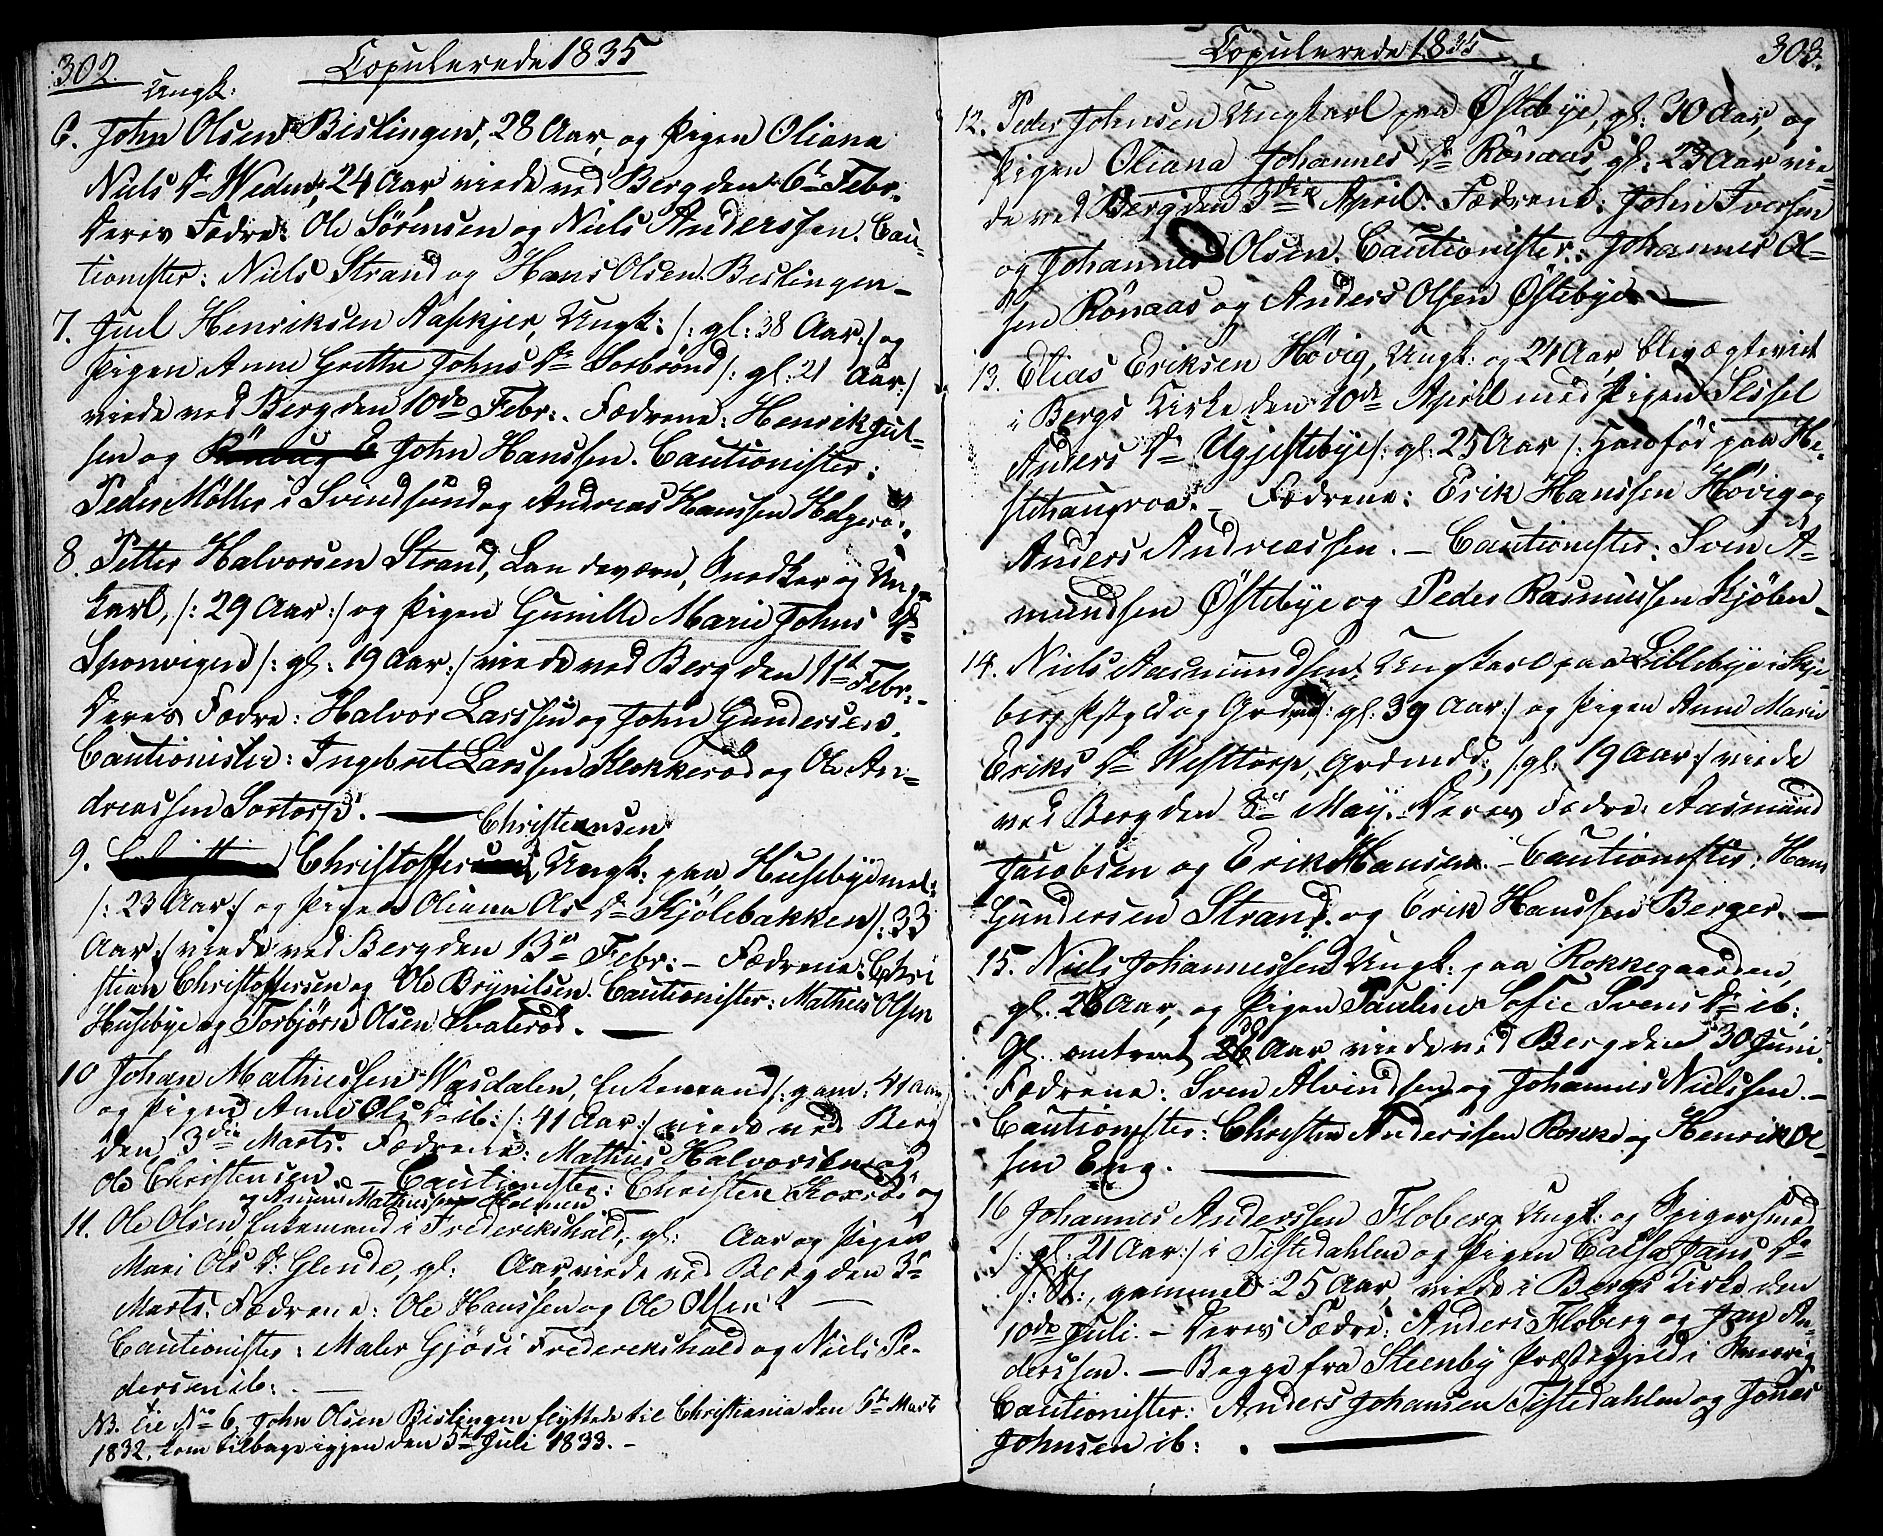 302. Copulerede 1835
Ungk:
6. John Olsen Bislingen, 28 Aar, og Pigen Oliana
Niels Dr Weden, 24 Aar viede ved Berg den 6te Febr.
Deres Fædre: Ole Sørensen og Niels Anderssen. Cau-
tionister: Niels Strand og Hans Olsen Bislingen –
7. Juel Henriksen Aaskjer, Ungk: /: gl: 38 Aar :/ og
Pigen Anne Grethe Johns Dr Sorbrönd /: gl: 21 Aar :/
viede ved Berg den 10de Febr: Fædrene: Henrik Jul-
sen og John Hanssen. Cautionister:
Peder Møller i Svindsund og Andreas Hanssen Helgerø.
8. Petter Halvorsen Strand, Landeværn, Snedker og Ung-
karl, /: 29 Aar :/ og Pigen Gunille Marie Johns Dr
Sponvigen /: gl: 19 Aar :/ viede ved Berg den 11te Febr. –
Deres Fædre: Halvor Larssen og John Gundersen.
Cautionister: Ingebret Larssen Klokkerød og Ole An-
dreassen Sortorp. —
Christiansen
9. Christoffer Ungk: paa Husebye mel:
/: 23 Aar :/ og Pigen Oliana Ols Dr Skjølebakken /: 33
Aar :/ viede ved Berg den 13de Febr: – Fædrene: Chri
stian Christoffersen og Ole Brynilsen. Cautionister: Mathias Olsen
Husebye og Torbjörn Olsen Svalerød. —
10 Johan Mathiessen Wasdalen, Enkemand /: gam: 41 Aar
og Pigen Anne Ols Dr ib: /: 41 Aar :/ viede ved Berg
den 3die Marts. Fædrene: Mathias Halvorsen og
Ole Christensen. – Cautionister: Christen og
og Mathiessen Holmen
11. Ole Olsen, Enkemand i Frederikshald, gl: Aar og Pigen
Mari Ols Dr Glende, gl: Aar viede ved Berg den 3de
Marts. Fædrene: Ole Hanssen og Ole Olsen –
Cautionister: Maler Gjøs i Frederekshald og Niels Pe-
dersen ib: –
NB. Til No 6. John Olsen Bislingen flyttede til Christiania den 5te Marts
1832, kom tilbage igjen den 5te Juli 1833. –
Copulerede 1835 303.
12. Peder Johnsen Ungkarl paa Østebye, gl: 30 Aar, og
Pigen Oliana Johannes Dr Rönaas, gl: 23 Aar vie-
de ved Berg den 3die April. Fædrene: John Iversen
og Johannes Olsen. Cautionister: Johannes Ol-
sen Rönaas og Anders Olsen Østebye. —
13. Elias Eriksen Høvig, Ungk: og 24 Aar, blev ægteviet
i Bergs Kirke den 10de April med Pigen Sissel
Anders Dr Ugjestebye /: gl: 25 Aar /: Født paa He-
stehaugroa. – Fædrene: Erik Hanssen Høvig og
Anders Andreassen. – Cautionister: Sven A-
mundsen Østebye og Peder Rasmussen Kjøben –
14. Niels Aasmundsen Ungkarl paa Lillebye i Skje-
berg /: gl: 39 Aar :/ og Pigen Anne Marie
Eriks Dr Westtorp, /: gl: 19 Aar :/ viede
ved Berg den 8de May. Deres Fædre: Aasmund
Jacobsen og Erik Hansen. – Cautionister: Hans
Gundersen Strand og Erik Hanssen Berger. —
15. Niels Johannessen Ungk: paa Rokkegaarden,
gl: 26 Aar, og Pigen Pauline Sofie Svens Dr ib:
Gl: omtrent Aar viede ved Berg den 30 Juni.
Fædrene: Sven Alvindsen og Johannes Nielssen. –
Cautionister: Christen Anderssen Rokke og Henrik Ol
sen Eng. —
16 Johannes Anderssen Floberg Ungk: og Spigersmed
/: gl: 21 Aar :/ i Tistedahlen og Pigen Caisa Jans Dr
gammel 25 Aar, viede i Bergs Kirke den
10de Juli. – Deres Fædre: Anders Floberg og Jan An-
derssen. – Begge fra Steenby Præstegjeld i Sverrig
Cautionister: Anders Johansen Tistedahlen og Jonas
Johnsen ib: —